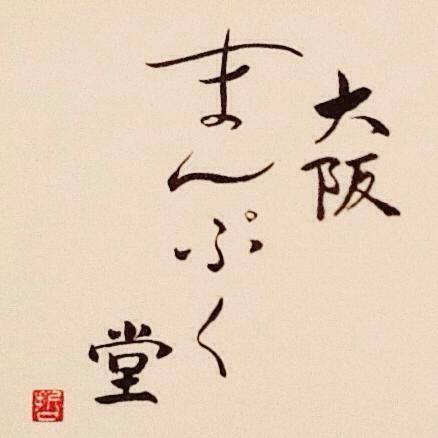 大阪
まんぷく
堂
哲